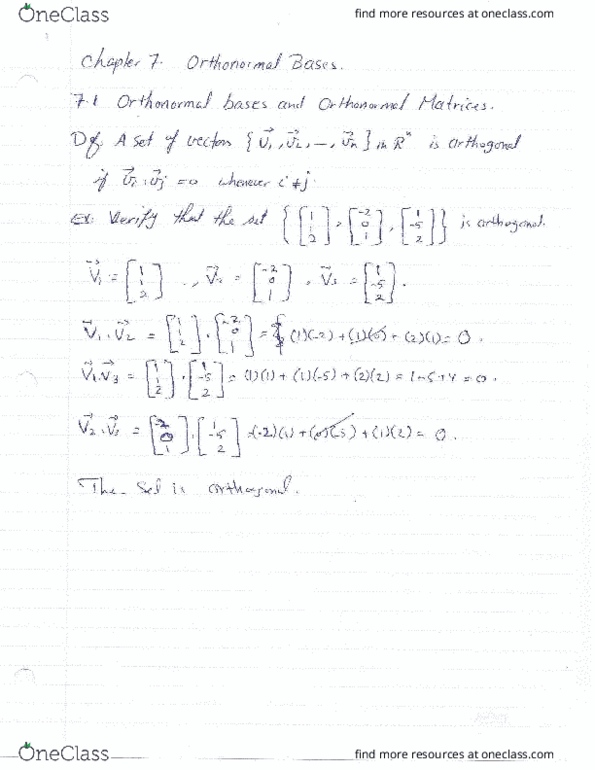 OneClass
find more resources at oneclass.com
Chapter 7. Orthonormal Bases.
7.1 Orthonormal bases and Orthonormal Matrices.
Df. A set of vectors {v⃗1, v⃗2, –, v⃗n} in Rⁿ is orthogonal
if v⃗i · v⃗j = 0 whenever i ≠ j.
Ex: Verify that the set {[1 1 2], [-2 0 1], [1 -5 2]} is orthogonal.
v⃗1 = [1 1 2], v⃗2 = [-2 0 1], v⃗3 = [1 -5 2].
v⃗1 · v⃗2 = [1 1 2] · [-2 0 1] = (1)(-2) + (1)(0) + (2)(1) = 0.
v⃗1 · v⃗3 = [1 1 2] · [1 -5 2] = (1)(1) + (1)(-5) + (2)(2) = 1-5+4 = 0.
v⃗2 · v⃗3 = [-2 0 1] · [1 -5 2] = (-2)(1) + (0)(-5) + (1)(2) = 0.
The set is orthogonal.
OneClass
find more resources at oneclass.com